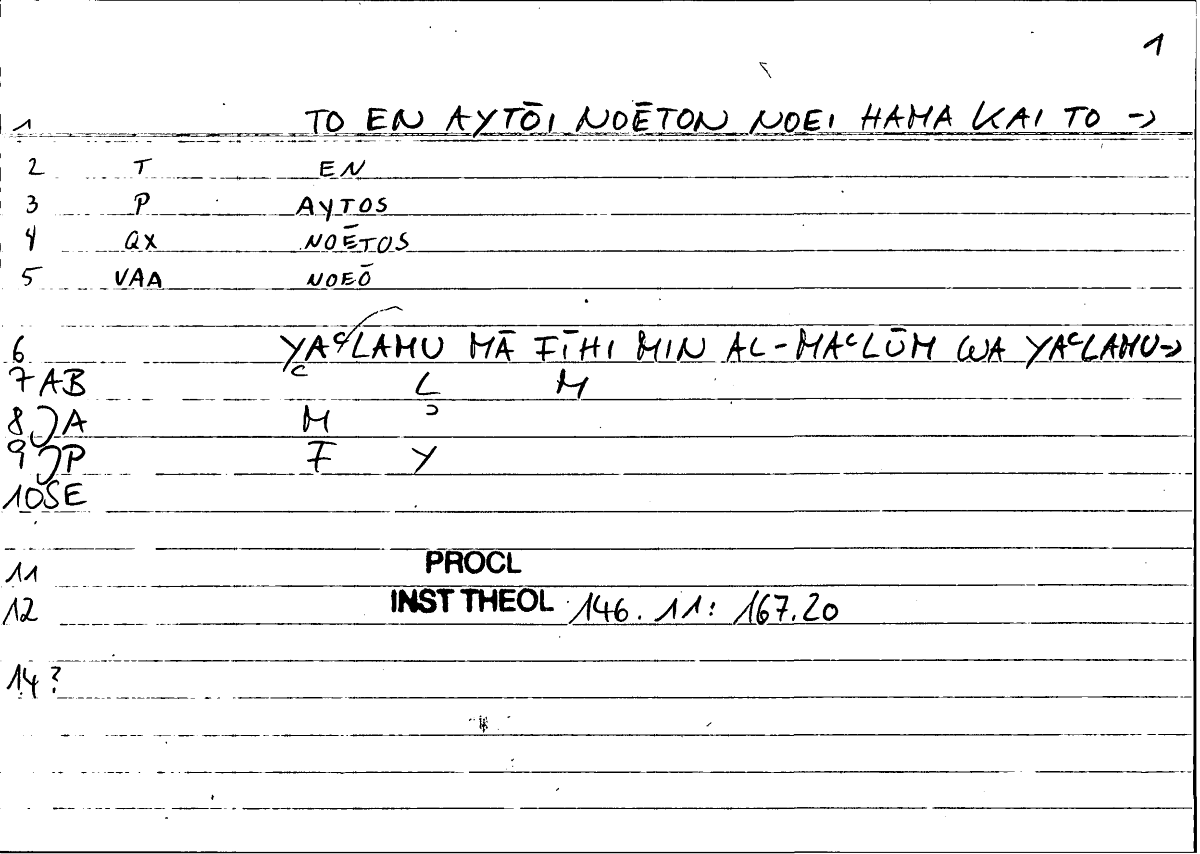 1
1 TO EN AYTŌI NOĒTON NOEI HAMA KAI TO ->
2 T EN
3 P AYTOS
4 QX NOĒTOS
5 VAA NOEŌ
6 YAᶜLAMU MĀ FĪHI MIN AL-MAᶜLŪM WA YAᶜLAMU->
7 AB C L M
8 JA M
9 JP F Y
10 SE
11 PROCL
12 INST THEOL 146. 11: 167.20
14 ?